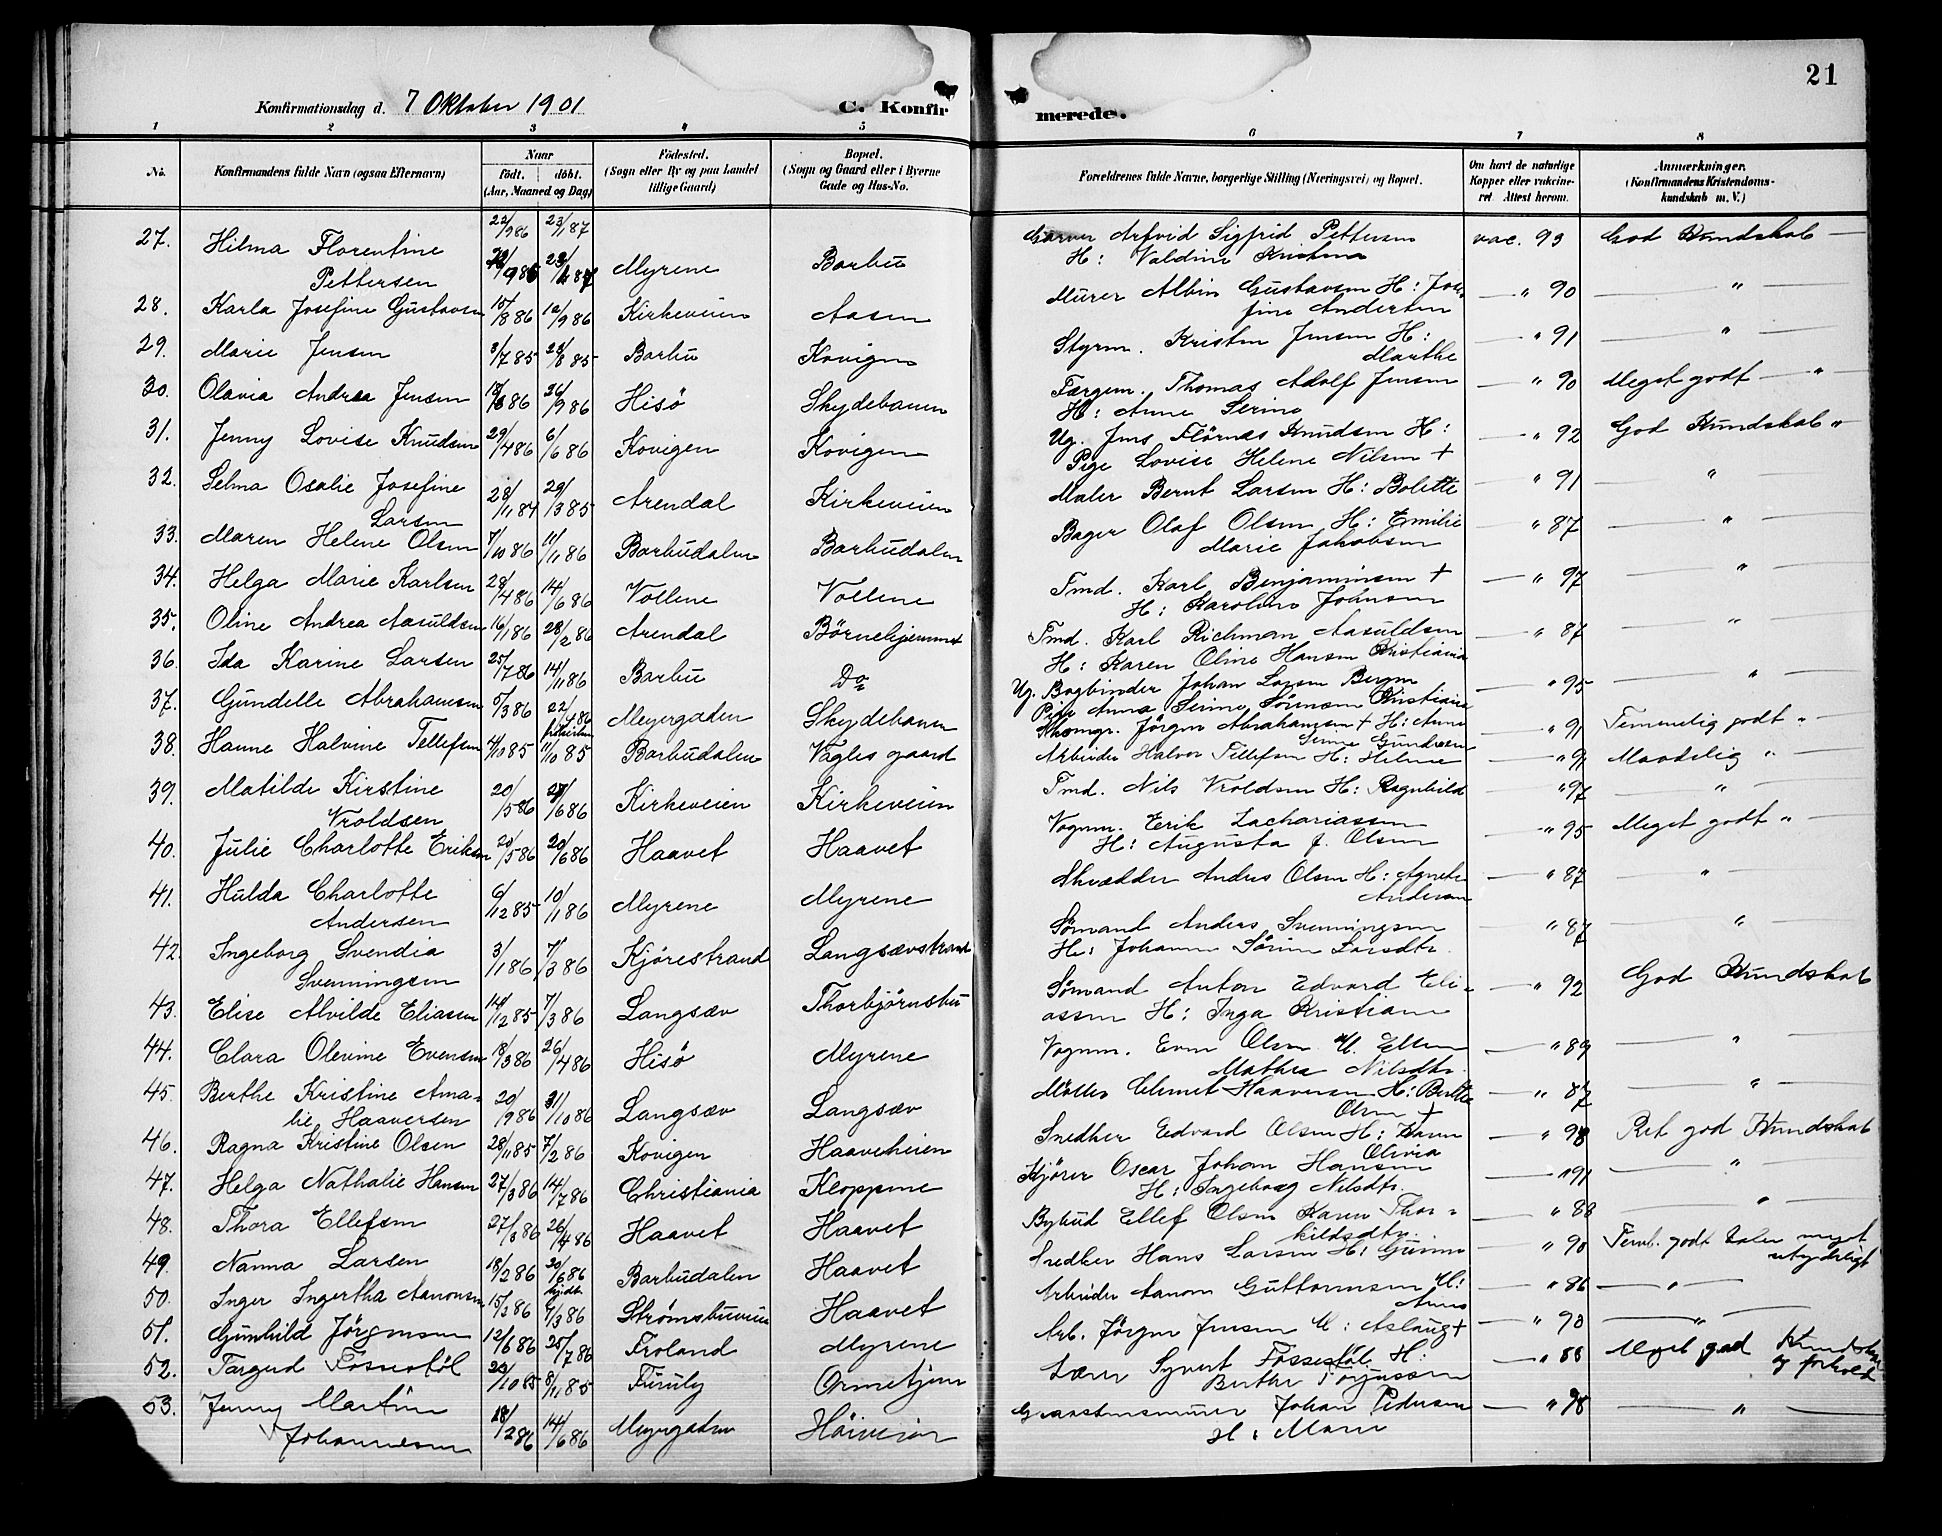 21
Konfirmationsdag d. 7 Oktober 1901
C. Konfirmerede.
1 2 3 4 5 6 7 8
No. Konfirmandens fulde Navn (ogsaa Efternavn) Naar født. døbt. (Aar, Maaned og Dag) Fødested. (Sogn eller By og paa Landet tillige Gaard) Bopæl. (Sogn og Gaard eller i Byerne Gade og Hus-No.) Forældrenes fulde Navne, borgerlige Stilling (Næringsvei) og Bopæl. Om havt de naturlige Kopper eller vakcineret. Attest herom. Anmærkninger. (Konfirmandens Kristendomskundskab m. V.)
22/9 86 23/1 87
27. Hilma Florentine Pettersen Myrene Barbu Garver Arfvid Sigfrid Pettersen H: Valdine Kristine vac. 93 God Kundskab —
28. Karla Josefine Gustavsen 15/8 86 12/9 86 Kirkeveien Aasen Murer Albin Gustavsen H: Josefine Andersen — " 90 — " —
29. Marie Jensen 3/7 85 23/8 85 Barbu Kovigen Styrm. Kristen Jensen H: Marthe — " 91 — " —
30. Olavia Andrea Jensen 18/6 86 26/9 86 Hisö Skydebanen Færgem. Thomas Adolf Jensen H: Anne Serine — " 90 Meget godt — " —
31. Jenny Lovise Knudsen 29/4 86 6/6 86 Kovigen Kovigen Ug. Jens Flörnæs Knudsen H: Pige Lovise Helene Nilsen + — " 92 God Kundskab "
32. Selma Osalie Josefine Larsen 28/11 84 29/3 85 Arendal Kirkeveien Maler Bernt Larsen H: Bolette — " 91 — " —
33. Maren Helene Olsen 7/10 86 11/11 86 Barbudalen Barbudalen Bager Olaf Olsen H: Emilie Marie Jakobsen — " 87 — " —
34. Helga Marie Karlsen 28/4 86 14/6 86 Vollene Vollene Tmd. Karl Benjaminsen + H: Karoline Johnsen — " 97 — " —
35. Oline Andrea Aasuldsen 16/1 86 28/2 86 Arendal Börnehjemmet Tmd. Karl Richman Aasuldsen H: Karen Oline Hansen Kristiania — " 87 — " —
36. Ida Karine Larsen 25/7 86 14/11 86 Barbu Do Ug. Bogbinder Johan Larsen Bergen Pige Anna Serine Sörensen Kristiania — " 95 — " —
37. Gundelle Abrahamsen 5/3 86 22/4 86 Meyergaden Skydebanen Jörgen Abrahamsen + H: Anne Serine Gundersen — " 91 Temmelig godt " —
38. Hanne Halvine Tellefsen 4/10 85 11/10 85 Barbudalen Vagles gaard Arbeider Halvor Tellefsen H: Helene — " 91 Maadelig " —
39. Matilde Kirstine Vroldsen 20/5 86 27/6 86 Kirkeveien Kirkeveien Tmd. Nils Vroldsen H: Ragnhild " 97 — " —
40. Julie Charlotte Eriksen 20/5 86 20/6 86 Haavet Haavet Vognm. Erik Zachariassen H: Augusta J. Olsen — " 95 Meget godt " —
41. Hulda Charlotte Andersen 6/12 85 10/1 86 Myrene Myrene Skrædder Anders Olsen H: Agnete Andersen — " 87 — " —
42. Ingeborg Svendia Svenningsen 3/1 86 7/3 86 Kjörestrand Langsævstrand Sömand Anders Svenningsen H: Johanne Sörine Larsdtr. — " 87 — " —
43. Elise Alvilde Eliassen 14/12 85 7/3 86 Langsæv Thorbjörnsbu Sömand Anton Edvard Eliassen H: Inga Kristiane — " 92 God Kundskab
44. Clara Olevine Evensen 18/3 86 26/4 86 Hisö Myrene Vognm. Even Olsen H. Ellen Mathea Nilsdtr. — " 89 — " —
45. Berthe Kristine Amalie Haaversen 20/9 86 31/10 86 Langsæv Langsæv Möller Clemet Haaversen H: Berthe Olsen + — " 87 — " —
46. Ragna Kristine Olsen 28/11 85 7/2 86 Kovigen Haaveheien Snedker Edvard Olsen H: Karen Olivia — " 98 Ret god Kundskab
47. Helga Nathalie Hansen 27/3 86 14/7 86 Christiania Kloppene Kjörer Oscar Johan Hansen H: Ingeborg Nilsdtr. — " 91 — " —
48. Thora Ellefsen 27/3 86 26/4 86 Haavet Haavet Bybud Ellef Olsen Karen Thorkildsdtr. — " 88 — " —
49. Nanna Larsen 18/2 86 20/6 86 Barbudalen Haavet Snedker Hans Larsen H: Gunine — " 90 Teml. godt taler meget utydeligt
50. Inger Ingertha Aanonsen 15/2 86 9/3 86 Strømsbuveien Haavet Arbeider Aanon Guttormsen H: Anne — " 86 — " —
51. Gunhild Jörgensen 12/6 86 25/7 86 Froland Myrene Arb. Jörgen Jensen H: Aslaug + — " 90 — " —
52. Targerd Fossestöl 20/10 85 8/11 85 Furuly Ormetjern Lærer Syvert Fossestöl H: Berthe Torjussen — " 88 Meget god Kundskab og forhold
53. Jenny Martine Johannesen 18/2 86 14/6 86 Meyergaden Höiveien Johan Pedersen H: Maren — " 98 — " —